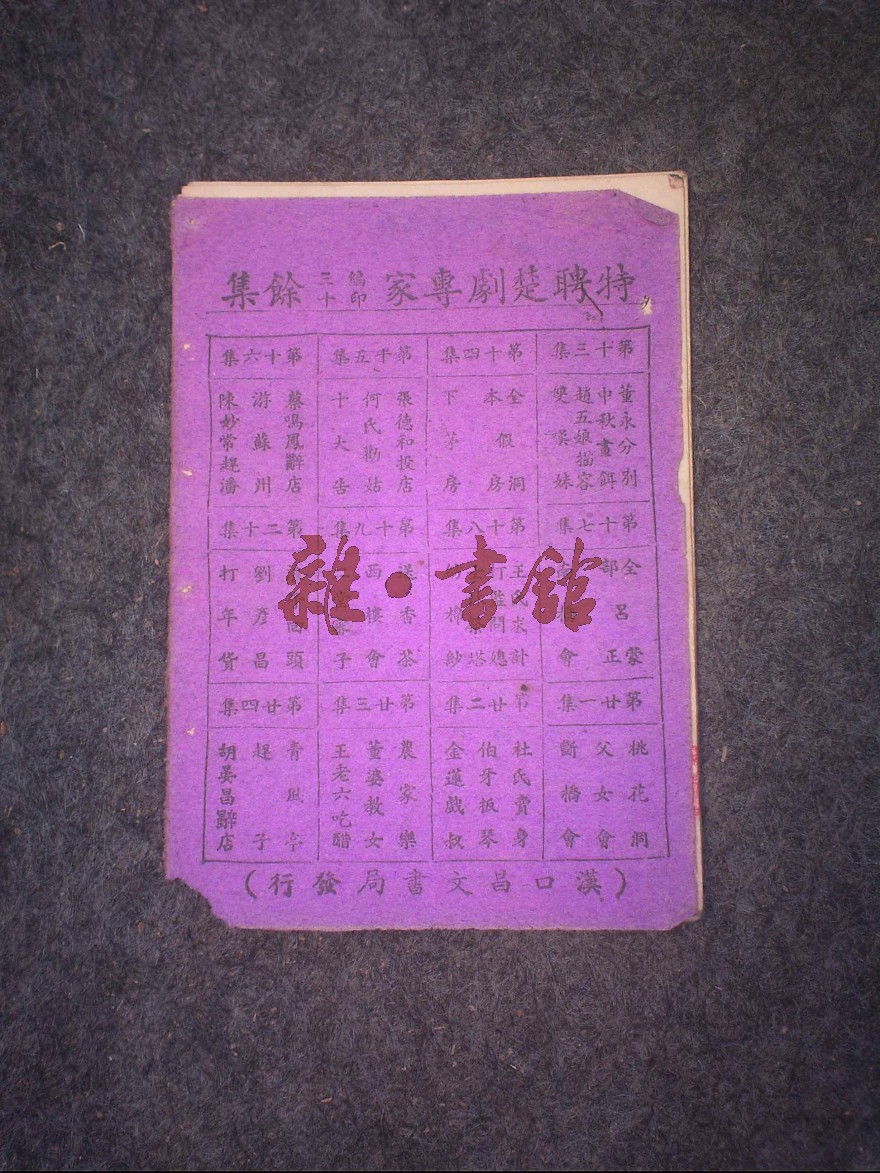 特聘楚劇專家編印三十餘集
第十三集
董永分別
中秋畫餌
趙五娘描容
雙嘆妹
第十四集
全本假洞房
下茅房
第十五集
張德和投店
何氏勸姑
十大告
第十六集
蔡鳴鳳辭店
游蘇州
陳妙常趕潘
第十七集
全部呂蒙正
會
第十八集
王氏求計
塔
棉紗
第十九集
送香茶
西樓會
子
第二十集
回頭
劉彥昌
打年貨
第廿一集
桃花洞
父女會
斷橋會
第廿二集
杜氏賣身
伯牙扳琴
金蓮戲叔
第廿三集
農家樂
董婆教女
王老六吃醋
第廿四集
青風亭
趕子
胡晏昌辭店
(漢口昌文書局發行)
雜·書館